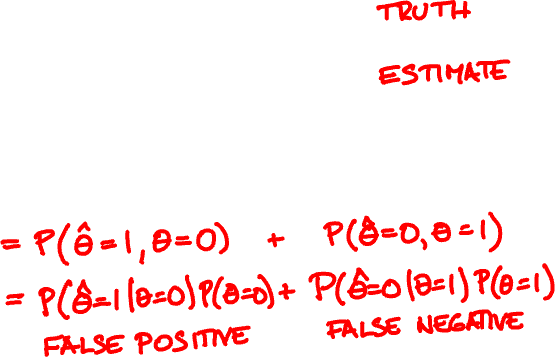 TRUTH
ESTIMATE
= P(θ̂=1, θ=0) + P(θ̂=0, θ=1)
= P(θ̂=1|θ=0) P(θ=0) + P(θ̂=0|θ=1) P(θ=1)
FALSE POSITIVE FALSE NEGATIVE